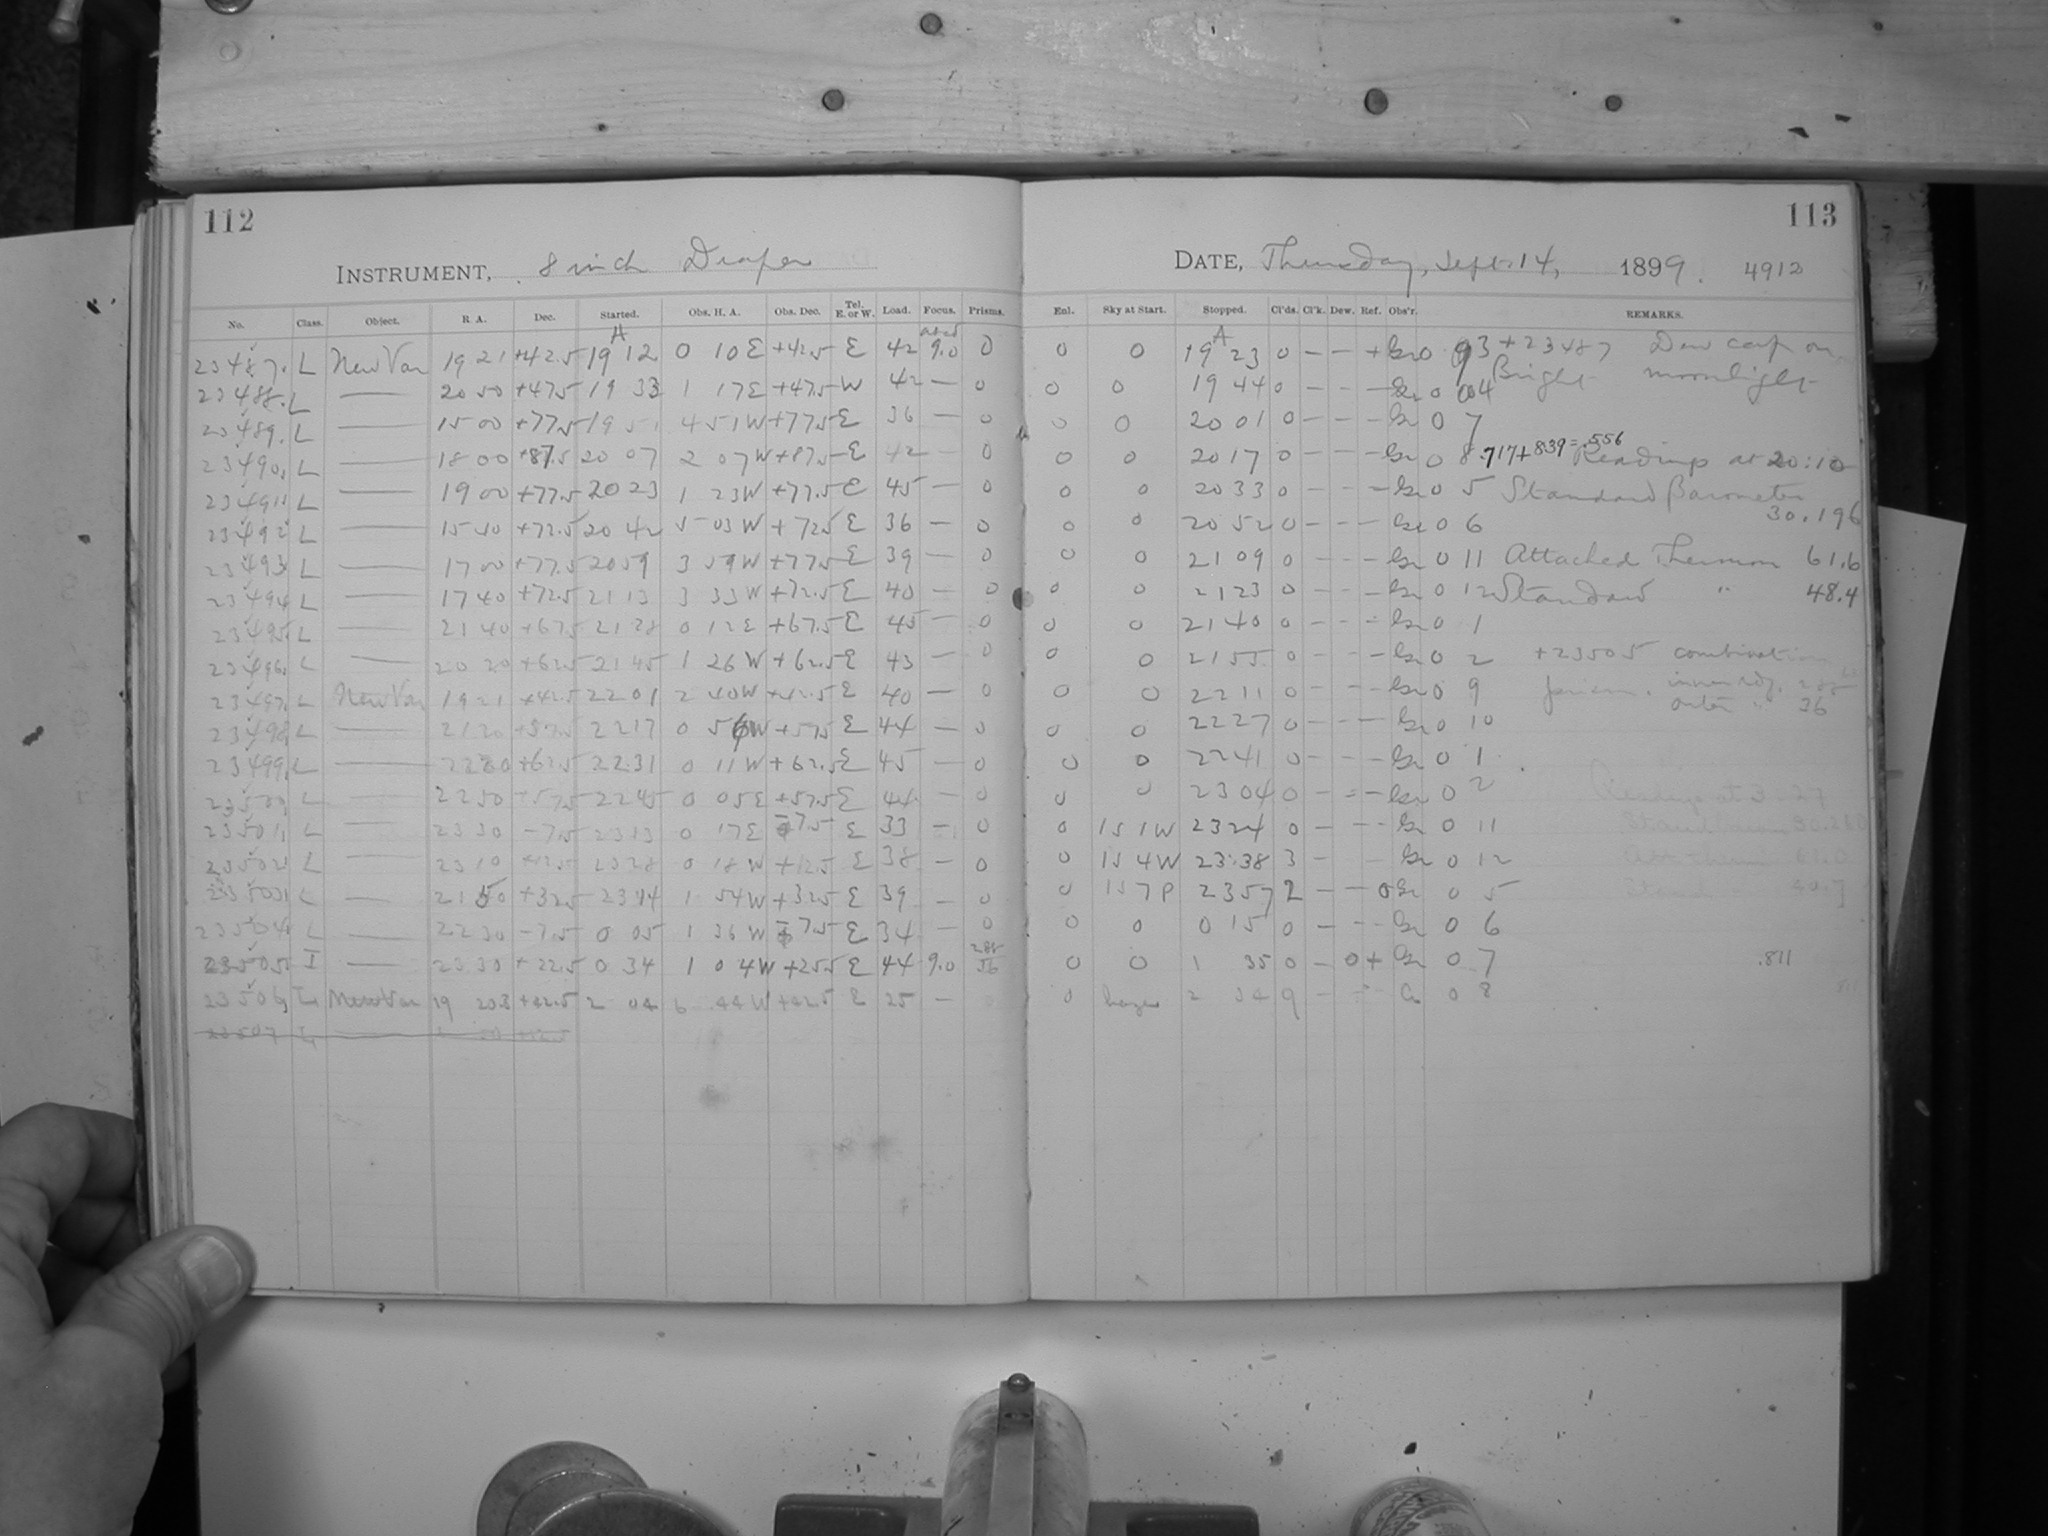 112
INSTRUMENT, 8 inch Draper
No. Class. Object. R. A. Dec. Started. Obs. H. A. Obs. Dec. Tel. E. or W. Load. Focus. Prisms.
23487. L New Var 19 21 +42.5 19 12 0 10 E +42.5 E 42 9.0 0
23488. L —— 20 50 +47.5 19 33 1 17 E +47.5 W 42 — 0
23489. L —— 15 00 +77.5 19 51 4 51 W +77.5 E 36 — 0
23490. L —— 18 00 +87.5 20 07 2 07 W +87.5 E 42 — 0
23491. L —— 19 00 +77.5 20 23 1 23 W +77.5 E 45 — 0
23492. L —— +72.5 20 42 5 03 W +72.5 E 36 — 0
23493. L —— 17 00 +77.5 20 59 3 59 W +77.5 E 39 — 0
23494 L —— 17 40 +72.5 21 13 3 33 W +72.5 E 40 — 0
23495. L —— 21 40 +67.5 21 28 0 12 E +67.5 E 45 — 0
23496. L —— 20 20 +62.5 21 45 1 26 W +62.5 E 43 — 0
23497. L New Var 19 21 +42.5 22 01 2 40 W +42.5 E 40 — 0
23498. L —— 21 20 +57.5 22 17 0 56 W +57.5 E 44 — 0
23499. L —— 22 20 +62.5 22 31 0 11 W +62.5 E 45 — 0
23500, L —— 22 50 +57.5 22 45 0 05 E +57.5 E 44 — 0
23501, L —— 23 30 -7.5 23 13 0 17 E -7.5 E 33 — 0
23502 L —— 23 10 +12.5 23 28 0 18 W +12.5 E 38 — 0
23503 L —— 21 50 +32.5 23 44 1 54 W +32.5 E 39 — 0
23504 L —— 22 30 -7.5 0 05 1 36 W -7.5 E 34 — 0
23505 I —— 23 30 +22.5 0 34 1 04 W +25.5 E 44 9.0
23506, L New Var 19 20.3 +42.5 2 04 6 44 W +42.5 E 25 —
23507 L
113
DATE, Thursday, Sept. 14, 1899. 4912
Enl. Sky at Start. Stopped. Cl'ds. Cl'k. Dew. Ref. Obs'r. REMARKS.
0 0 19 23 0 — — + Gr 0 93 + 23487 Dew cap on
0 0 19 44 0 — — — Gr 0 4 Bright moonlight
0 0 20 01 0 — — — Gr 0 7
0 0 20 17 0 — — — Gr 0 8 .717+839=.556 Readings at 20:10
0 0 20 33 0 — — — Gr 0 5 Standard Barometer
0 0 20 52 0 — — — Gr 0 6 30.196
0 0 21 09 0 — — — Gr 0 11 Attached Thermom 61.6
0 0 21 23 0 — — — Gr 0 12 Standard " 48.4
0 0 21 40 0 — — — Gr 0 1
0 0 21 55 0 — — — Gr 0 2 +23505 combination
0 0 22 11 0 — — — Gr 0 9 prism. inner rdg. 288
outer " 36
0 0 22 27 0 — — — Gr 0 10
0 0 22 41 0 — — — Gr 0 1
0 0 23 04 0 — — — Gr 0 2 Readings at 3 27
0 1s 1W 23 24 0 — — — Gr 0 11
0 1s 4W 23 38 3 — — Gr 0 12
0 1s 7P 23 57 2 — — 0 Gr 0 5
0 0 0 15 0 — — — Gr 0 6
0 0 1 35 0 — 0 + Gr 0 7 .811
0 haze 2 34 9 — — — 0 8